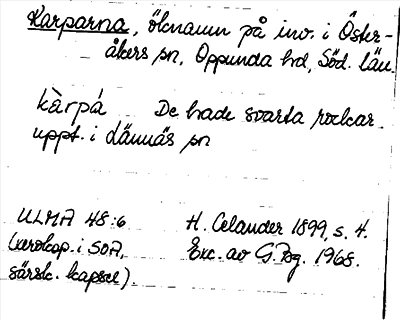 Karparna, öknamn på inv. i Öster-
åkers sn, Oppunda hd, Söd. län.
kàrpá De hade svarta rockar.
uppt. i Lännäs sn
ULMA 48:6 H. Celander 1899, s. 4.
(xerokop. i SOA, Exc. av G. Bg. 1968.
särsk. kapsel).